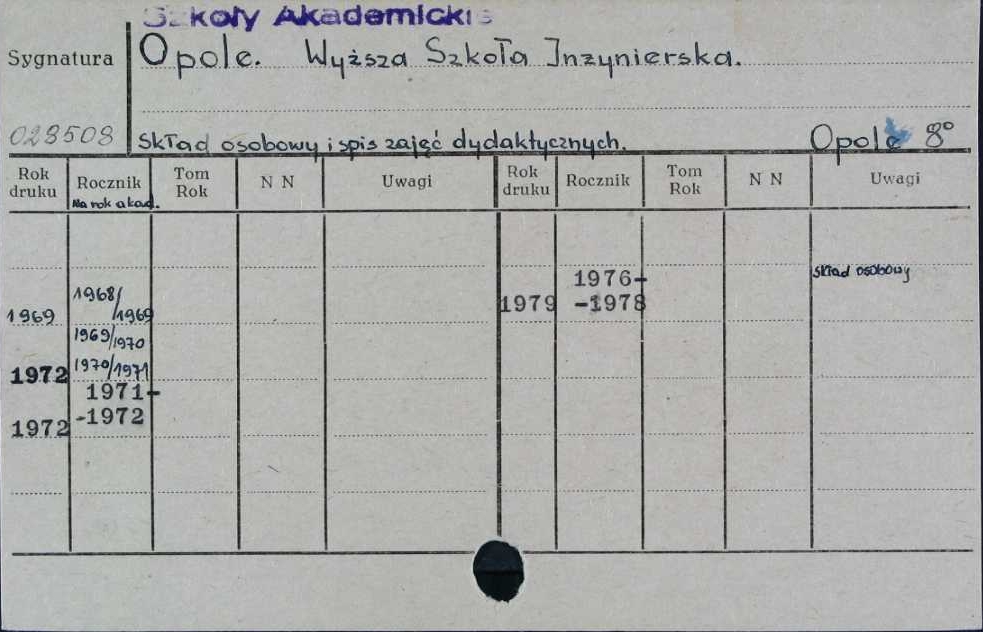 Szkoły Akademickie
Sygnatura
Opole. Wyższa Szkoła Inżynierska.
028508
Skład osobowy i spis zajęć dydaktycznych.
Opole 8°
Rok druku
Rocznik
Na rok akad.
Tom Rok
N N
Uwagi
Rok druku
Rocznik
Tom Rok
N N
Uwagi
1969
1968/
/1969
1969/1970
1972
1970/1971
1971-
1972
-1972
1976-
skład osobowy
1979
-1978